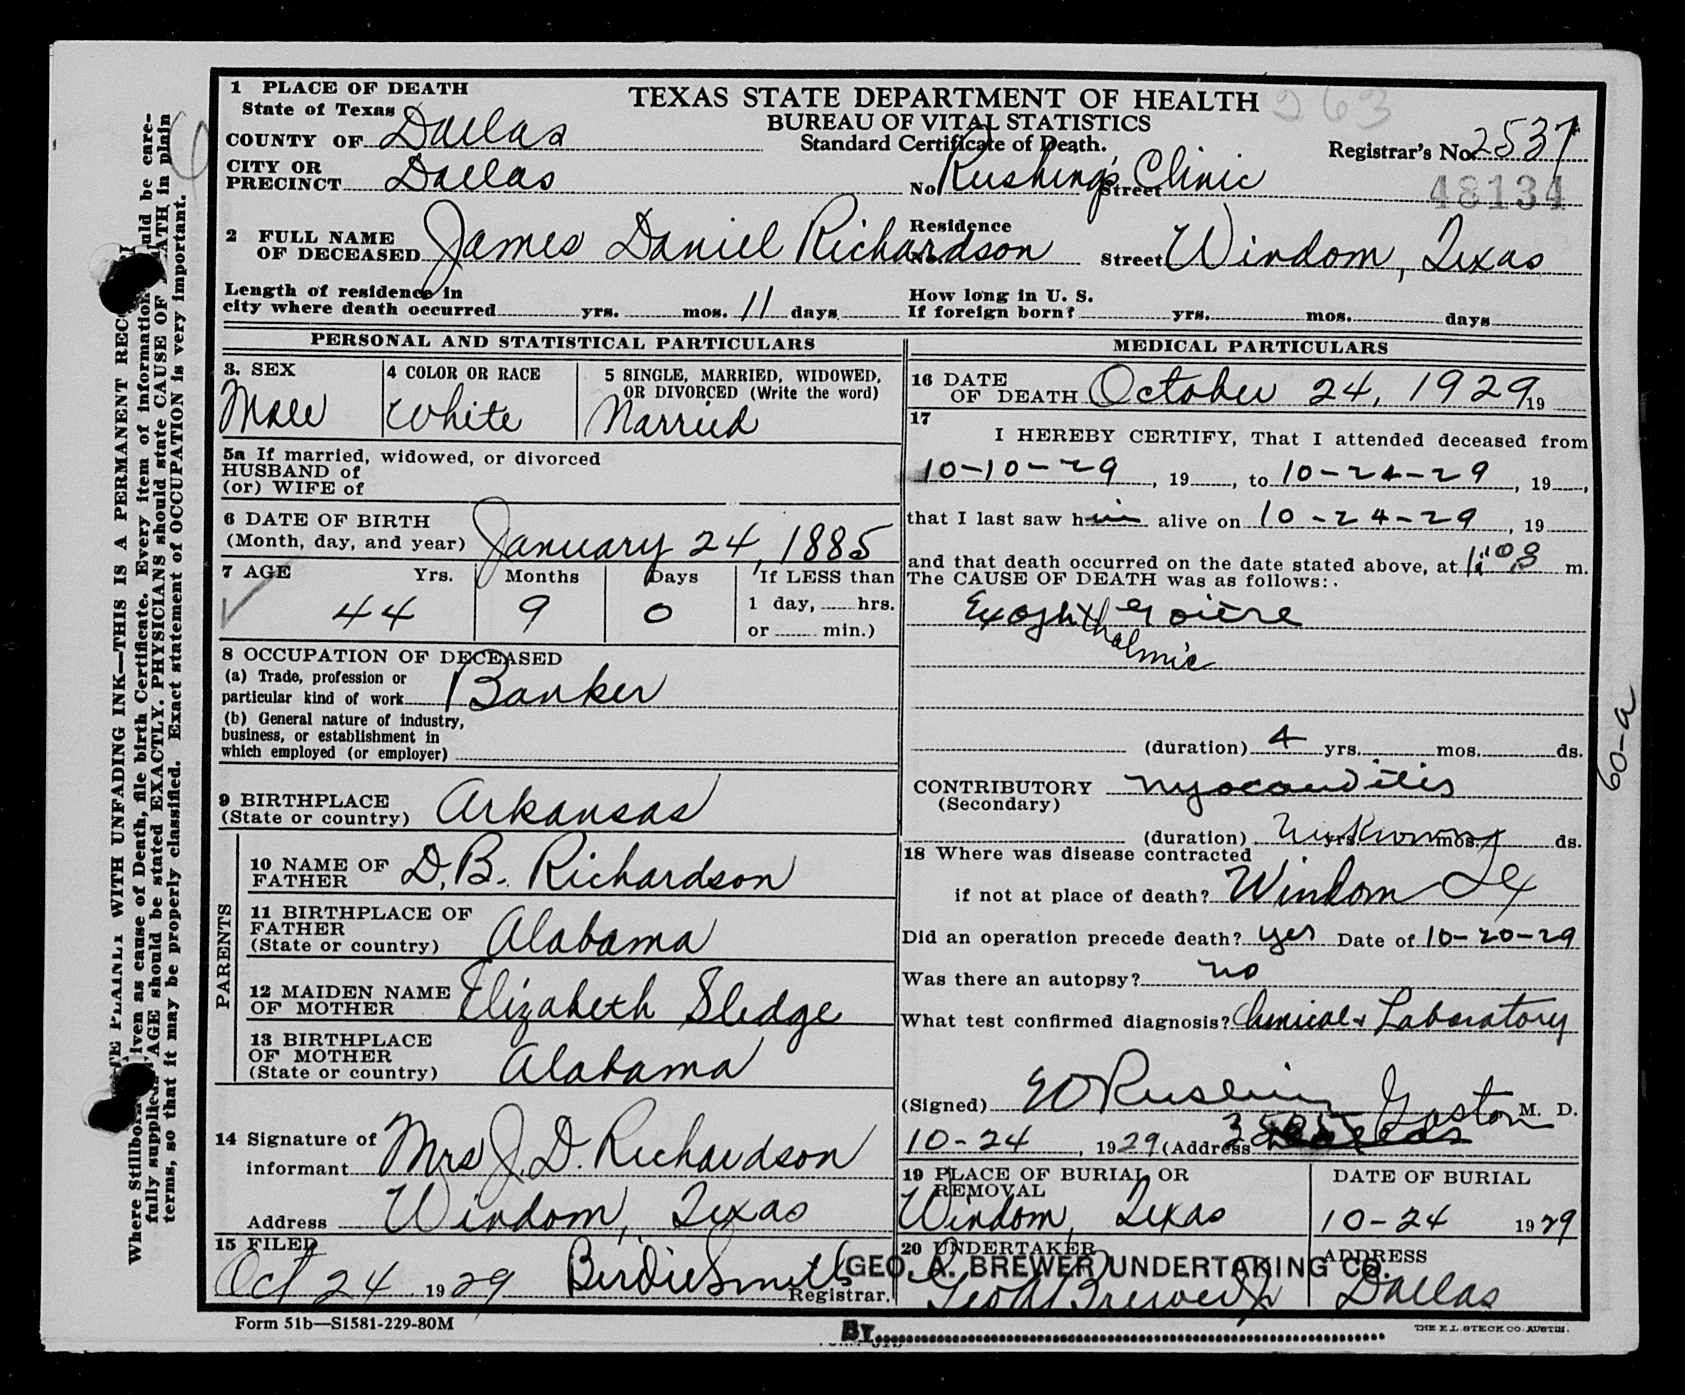 1 PLACE OF DEATH
State of Texas
COUNTY OF Dallas
CITY OR PRECINCT Dallas
TEXAS STATE DEPARTMENT OF HEALTH
263
BUREAU OF VITAL STATISTICS
Standard Certificate of Death.
Registrar's No. 2537
No. Rushing's Clinic Street
48134
2 FULL NAME OF DECEASED James Daniel Richardson
Residence No. Street Windom, Texas
Length of residence in city where death occurred yrs. mos. 11 days
How long in U. S. If foreign born? yrs. mos. days
PERSONAL AND STATISTICAL PARTICULARS
3. SEX
Male
4 COLOR OR RACE
White
5 SINGLE, MARRIED, WIDOWED, OR DIVORCED (Write the word)
Married
5a If married, widowed, or divorced
HUSBAND of
(or) WIFE of
6 DATE OF BIRTH
(Month, day, and year) January 24, 1885
7 AGE Yrs. Months Days If LESS than
44 9 0 1 day, hrs.
or min.)
8 OCCUPATION OF DECEASED
(a) Trade, profession or
particular kind of work Banker
(b) General nature of industry,
business, or establishment in
which employed (or employer)
9 BIRTHPLACE
(State or country) Arkansas
PARENTS
10 NAME OF FATHER D. B. Richardson
11 BIRTHPLACE OF FATHER
(State or country) Alabama
12 MAIDEN NAME OF MOTHER Elizabeth Sledge
13 BIRTHPLACE OF MOTHER
(State or country) Alabama
14 Signature of
informant Mrs J. D. Richardson
Address Windom, Texas
15 FILED
Oct 24 1929 Birdie Smith
Registrar.
MEDICAL PARTICULARS
16 DATE OF DEATH October 24, 1929 19
17
I HEREBY CERTIFY, That I attended deceased from
10-10-29, 19, to 10-24-29, 19,
that I last saw him alive on 10-24-29, 19
and that death occurred on the date stated above, at m.
The CAUSE OF DEATH was as follows:
Exophthalmic Goitre
(duration) 4 yrs. mos. ds.
CONTRIBUTORY Myocarditis
(Secondary)
(duration) Unknown yrs. mos. ds.
18 Where was disease contracted
if not at place of death? Windom Tex
Did an operation precede death? yes Date of 10-20-29
Was there an autopsy? no
What test confirmed diagnosis? Clinical & Laboratory
(Signed) E O Rushing M. D.
10-24, 1929 (Address Gaston
19 PLACE OF BURIAL OR REMOVAL
Windom, Texas
DATE OF BURIAL
10-24 1929
20 UNDERTAKER
GEO. A. BREWER UNDERTAKING CO.
Geo A Brewer Jr
ADDRESS
Dallas
Form 51b—S1581-229-80M
BY
THE E.L. STECK CO. AUSTIN.
60-a
WITH UNFADING INK—THIS IS A PERMANENT
Where Stillborn given as cause of Death, file birth Certificate. Every item of information should be care-
fully supplied. AGE should be stated EXACTLY. PHYSICIANS should state CAUSE OF DEATH in plain
terms, so that it may be properly classified. Exact statement of OCCUPATION is very important.